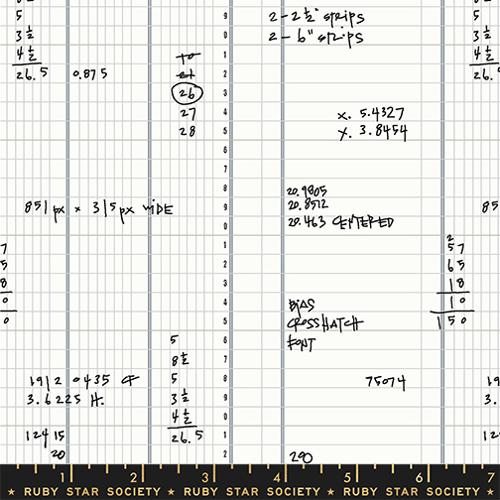 5
3 1/2
4 1/2
26.5 0.875
2 - 2 1/2" strips
2 - 6" strips
26
27
28
x. 5.4327
y. 3.8454
851 px x 315 px WIDE
20.9805
20.8512
20.463 CENTERED
2
57
65
18
10
150
BIAS
CROSSHATCH
FONT
5
8 1/2
5
3 1/2
4 1/2
26.5
1912 0435 CF
3.6225 H.
75074
12415
20
290
1 2 3 4 5 6 7
★ RUBY STAR SOCIETY ★ RUBY STAR SOCIETY ★ RUBY STAR SOCIETY ★